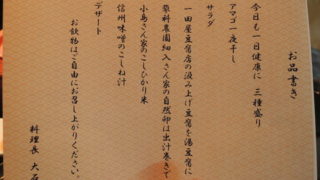 お品書き
今日も一日健康に 三種盛り
アマゴ一夜干し
サラダ
一田屋豆腐店の汲み上げ豆腐を湯豆腐に
築科農園細入さん家の自然卵は出汁巻きで
小島さん家のこしひかり米
信州味噌のこしね汁
デザート
お飲物はご自由にお召し上がりください。
料理長 大石